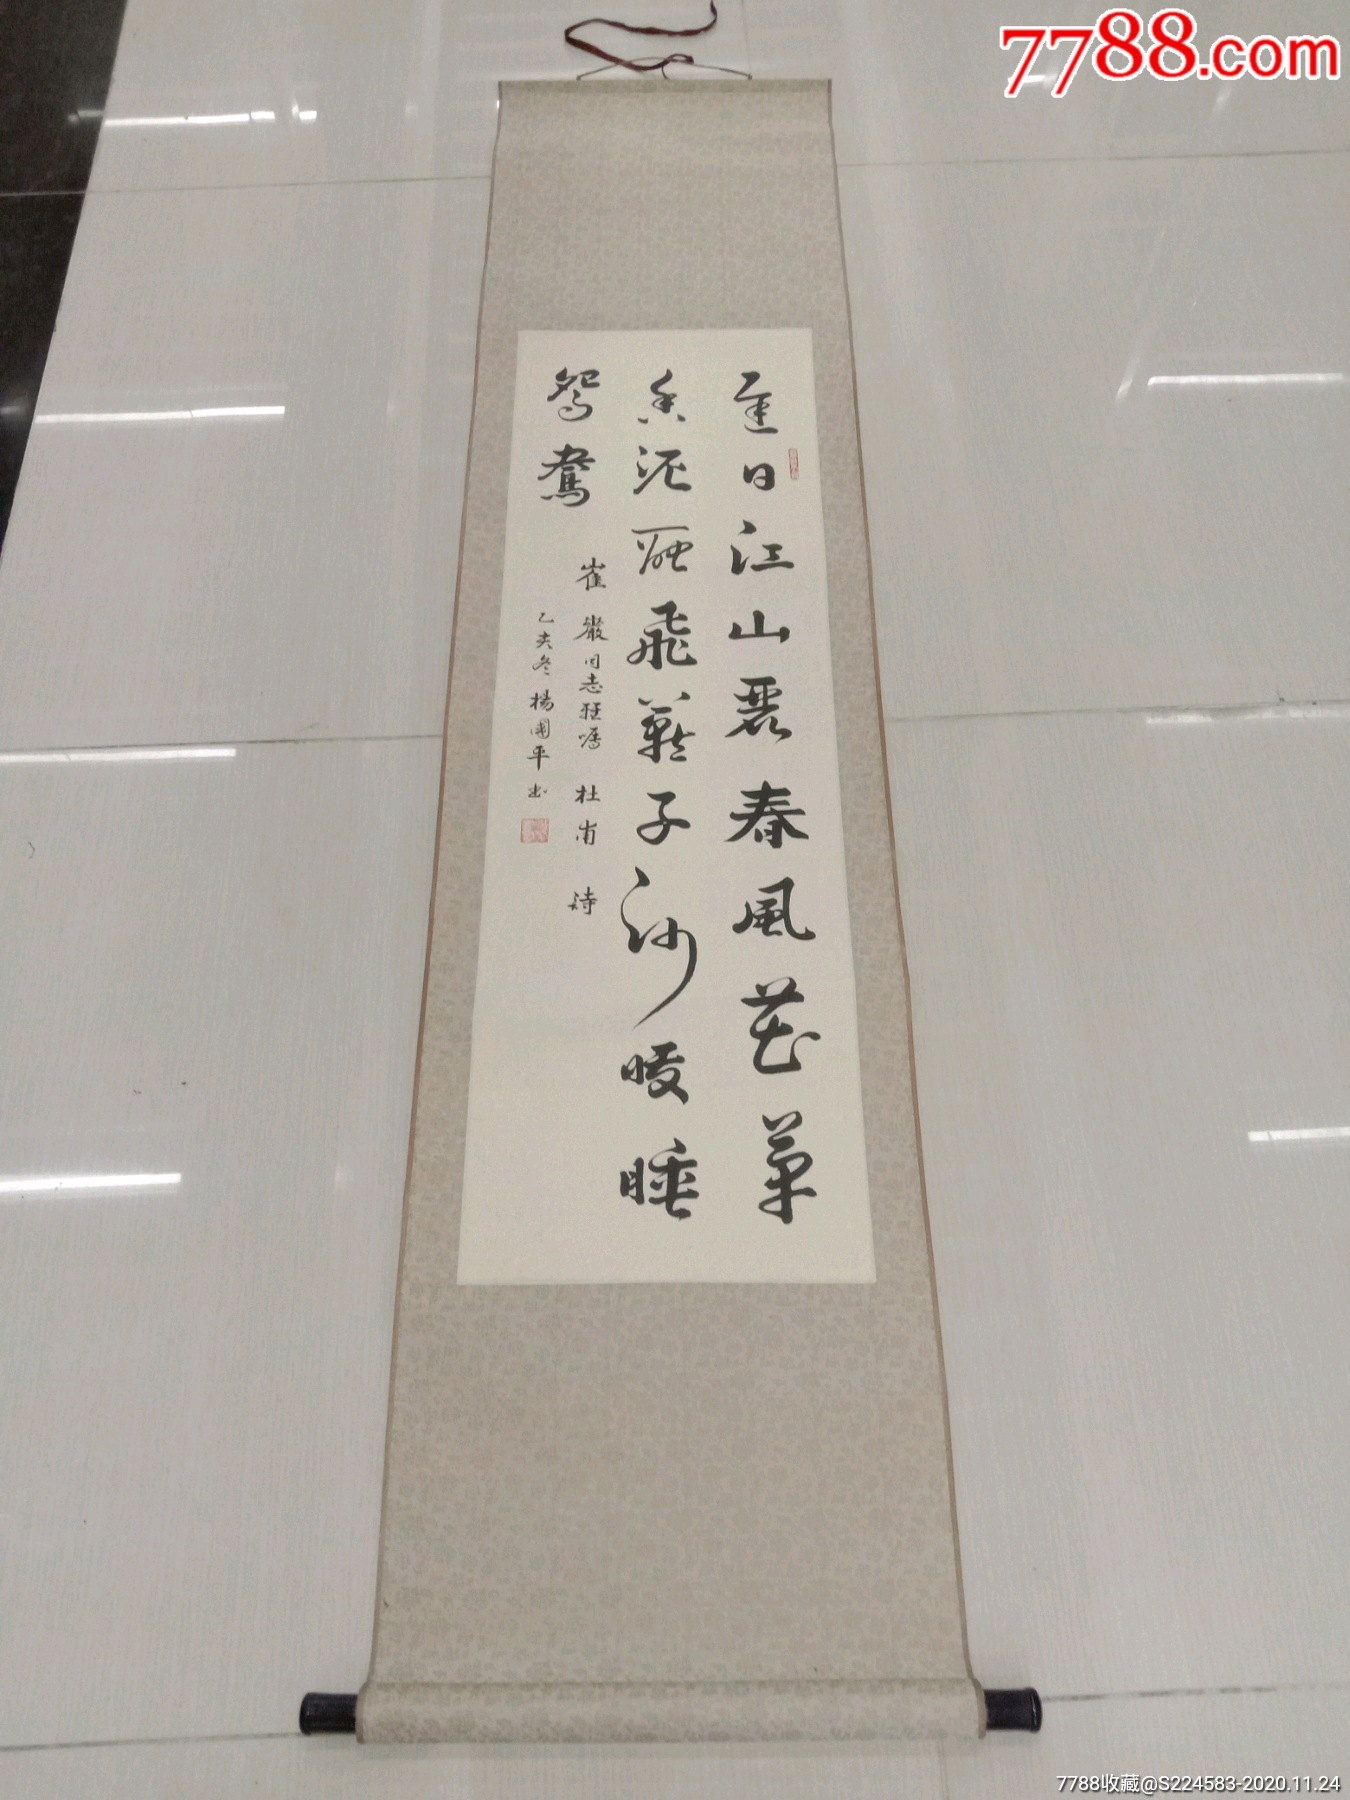 7788.com
遲日江山麗春風花草
香泥融飛燕子沙暖睡
鴛鴦
崔巖同志雅嘱 杜甫詩
乙亥冬楊國平书
7788收藏@S224583-2020.11.24